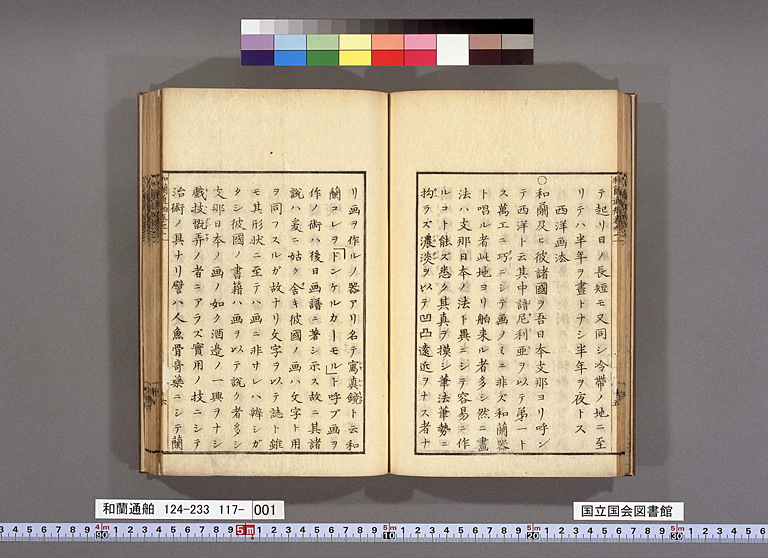 テ起リ日ノ長短モ又同シ冷帯ノ地ニ至
リテハ半年ヲ晝トナシ半年ヲ夜トス
西洋画法
〇和蘭及ヒ彼諸國ヲ吾日本支那ヨリ呼ン
テ西洋ト云其中諳尼利亜ヲ以テ第一ト
ス萬工ニ巧ニシテ画ノミニ非ズ和蘭器
ト唱ル者此地ヨリ舶来ル者多シ然ニ畫
法ハ支那日本ノ法ト異ニシテ容易ニ作
ルコト能ズ悉ク其真ヲ摸シ筆法筆勢ニ
拘ラズ濃淡ヲ以テ凹凸遠近ヲナス者ナ
リ画ヲ作ルノ器アリ名テ寫真鏡ト云和
蘭コレヲドンケルカーモルト呼ブ画ヲ
作ノ術ハ後日画譜ニ著シ示ス故ニ其諸
説ハ爰ニ姑ク舎キ彼國ノ画ハ文字ト用
ヲ同フスルガ故ナリ文字ヲ以テ誌ト雖
モ其形状ニ至テハ画ニ非サレハ辨シガ
タシ彼國ノ書籍ハ画ヲ以テ説ク者多シ
支那日本ノ画ノ如ク酒邉ノ一興ヲナシ
戲技翫弄ノ者ニアラズ實用ノ技ニシテ
治術ノ具ナリ譬ハ人魚骨奇藥ニシテ蘭
和蘭通舶 124-233 117- 001
国立国会図書館